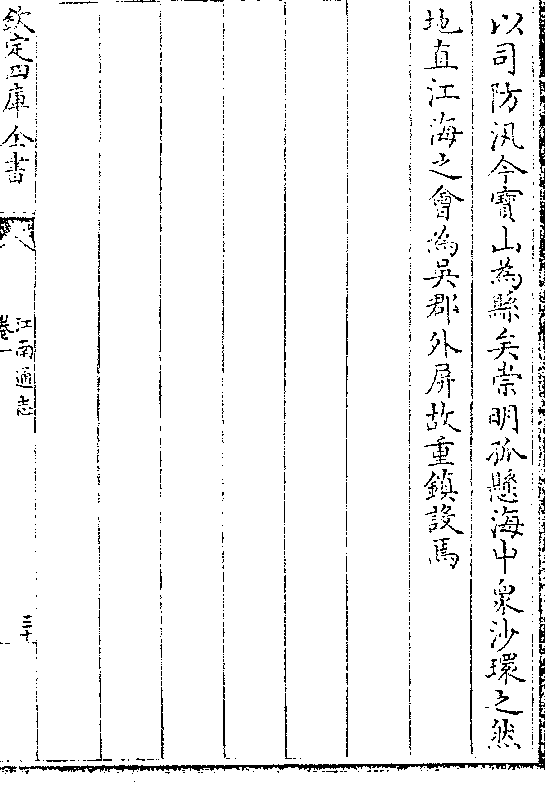 以司防汛今寶山為縣矣崇明孤懸海中衆沙環之然
地直江海之會為吳郡外屏故重鎮設焉
欽定四庫全書
江南通志
卷一
三十